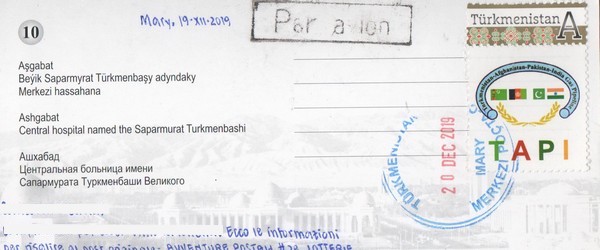 10
Mary, 19-XII-2019
Par avion
Türkmenistan A
Aşgabat
Beýik Saparmyrat Türkmenbaşy adyndaky
Merkezi hassahana
Ashgabat
Central hospital named the Saparmurat Turkmenbashi
Ашхабад
Центральная больница имени
Сапармурата Туркменбаши Великого
Turkmenistan-Afghanistan-Pakistan-India Gas Pipeline
TAPI
TÜRKMENISTAN
20 DEC 2019
MARY
MERKEZI POÇTA
Ecco le informazioni
per risalire al post originale: AVVENTURE POSTALI